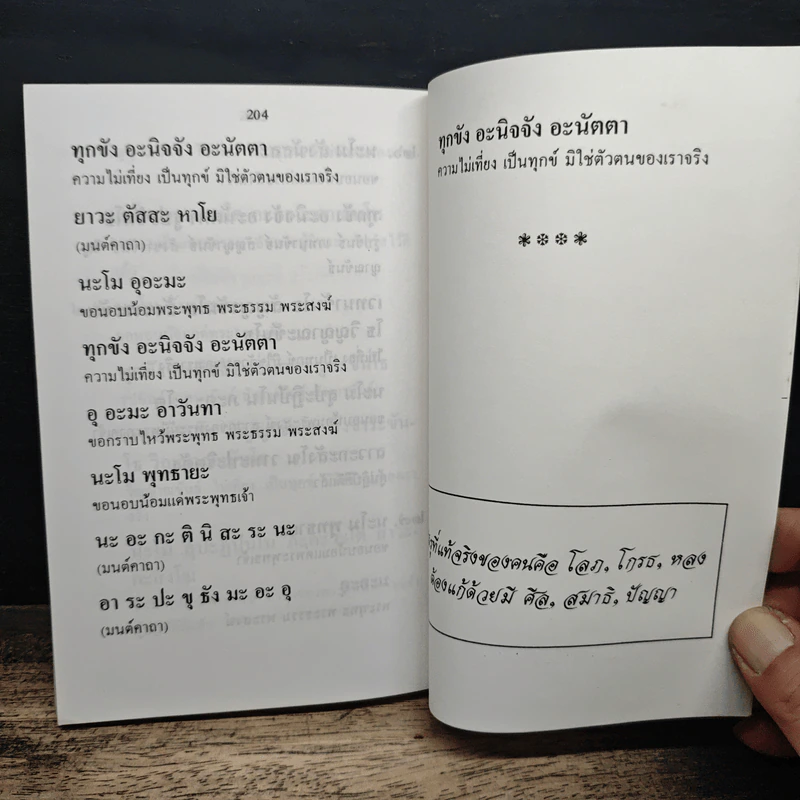 204
ทุกขัง อะนิจจัง อะนัตตา
ความไม่เที่ยง เป็นทุกข์ มิใช่ตัวตนของเราจริง
ยาวะ ตัสสะ หาโย
(มนต์คาถา)
นะโม อุอะมะ
ขอนอบน้อมพระพุทธ พระธรรม พระสงฆ์
ทุกขัง อะนิจจัง อะนัตตา
ความไม่เที่ยง เป็นทุกข์ มิใช่ตัวตนของเราจริง
อุ อะมะ อาวันทา
ขอกราบไหว้พระพุทธ พระธรรม พระสงฆ์
นะโม พุทธายะ
ขอนอบน้อมแด่พระพุทธเจ้า
นะ อะ กะ ติ นิ สะ ระ นะ
(มนต์คาถา)
อา ระ ปะ ขุ ธัง มะ อะ อุ
(มนต์คาถา)
ทุกขัง อะนิจจัง อะนัตตา
ความไม่เที่ยง เป็นทุกข์ มิใช่ตัวตนของเราจริง
ที่แท้จริงของคนคือ โลภ, โกรธ, หลง
ต้องแก้ด้วยมี ศีล, สมาธิ, ปัญญา